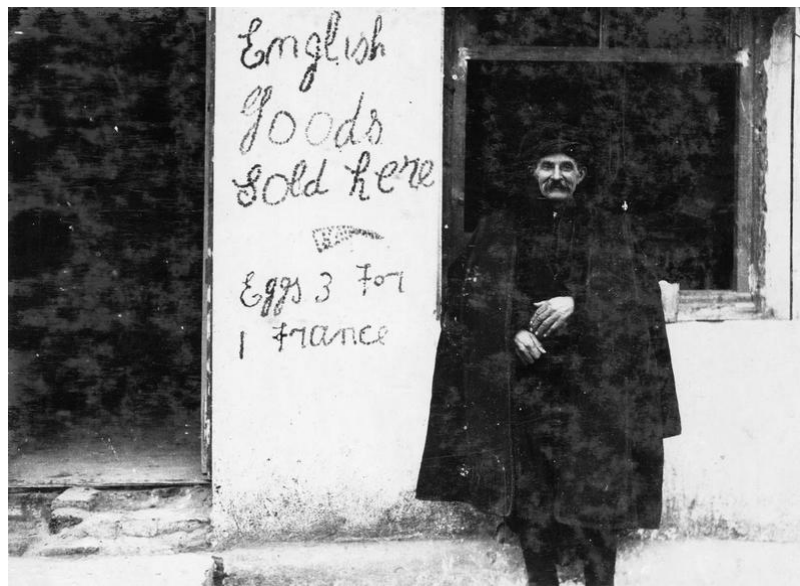 English
Goods
Sold here
Eggs 3 For
1 France